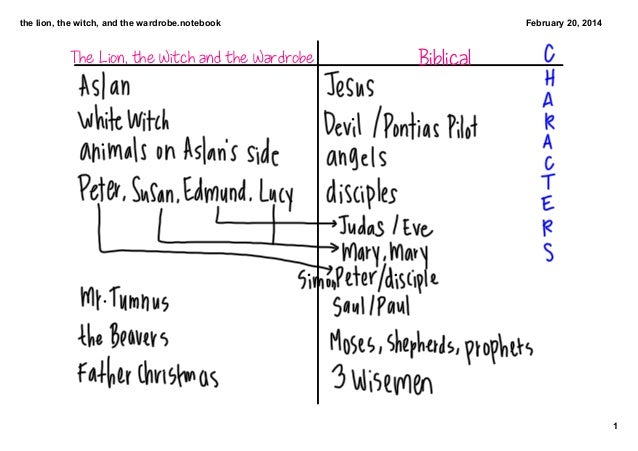 the lion, the witch, and the wardrobe.notebook February 20, 2014
The Lion, the Witch and the Wardrobe Biblical
CHARACTERS
Aslan Jesus
White Witch Devil / Pontias Pilot
animals on Aslan's side angels
Peter, Susan, Edmund, Lucy disciples
Judas / Eve
Mary, Mary
Simon Peter/disciple
Mr. Tumnus Saul / Paul
the Beavers Moses, shepherds, prophets
Father Christmas 3 Wisemen
1